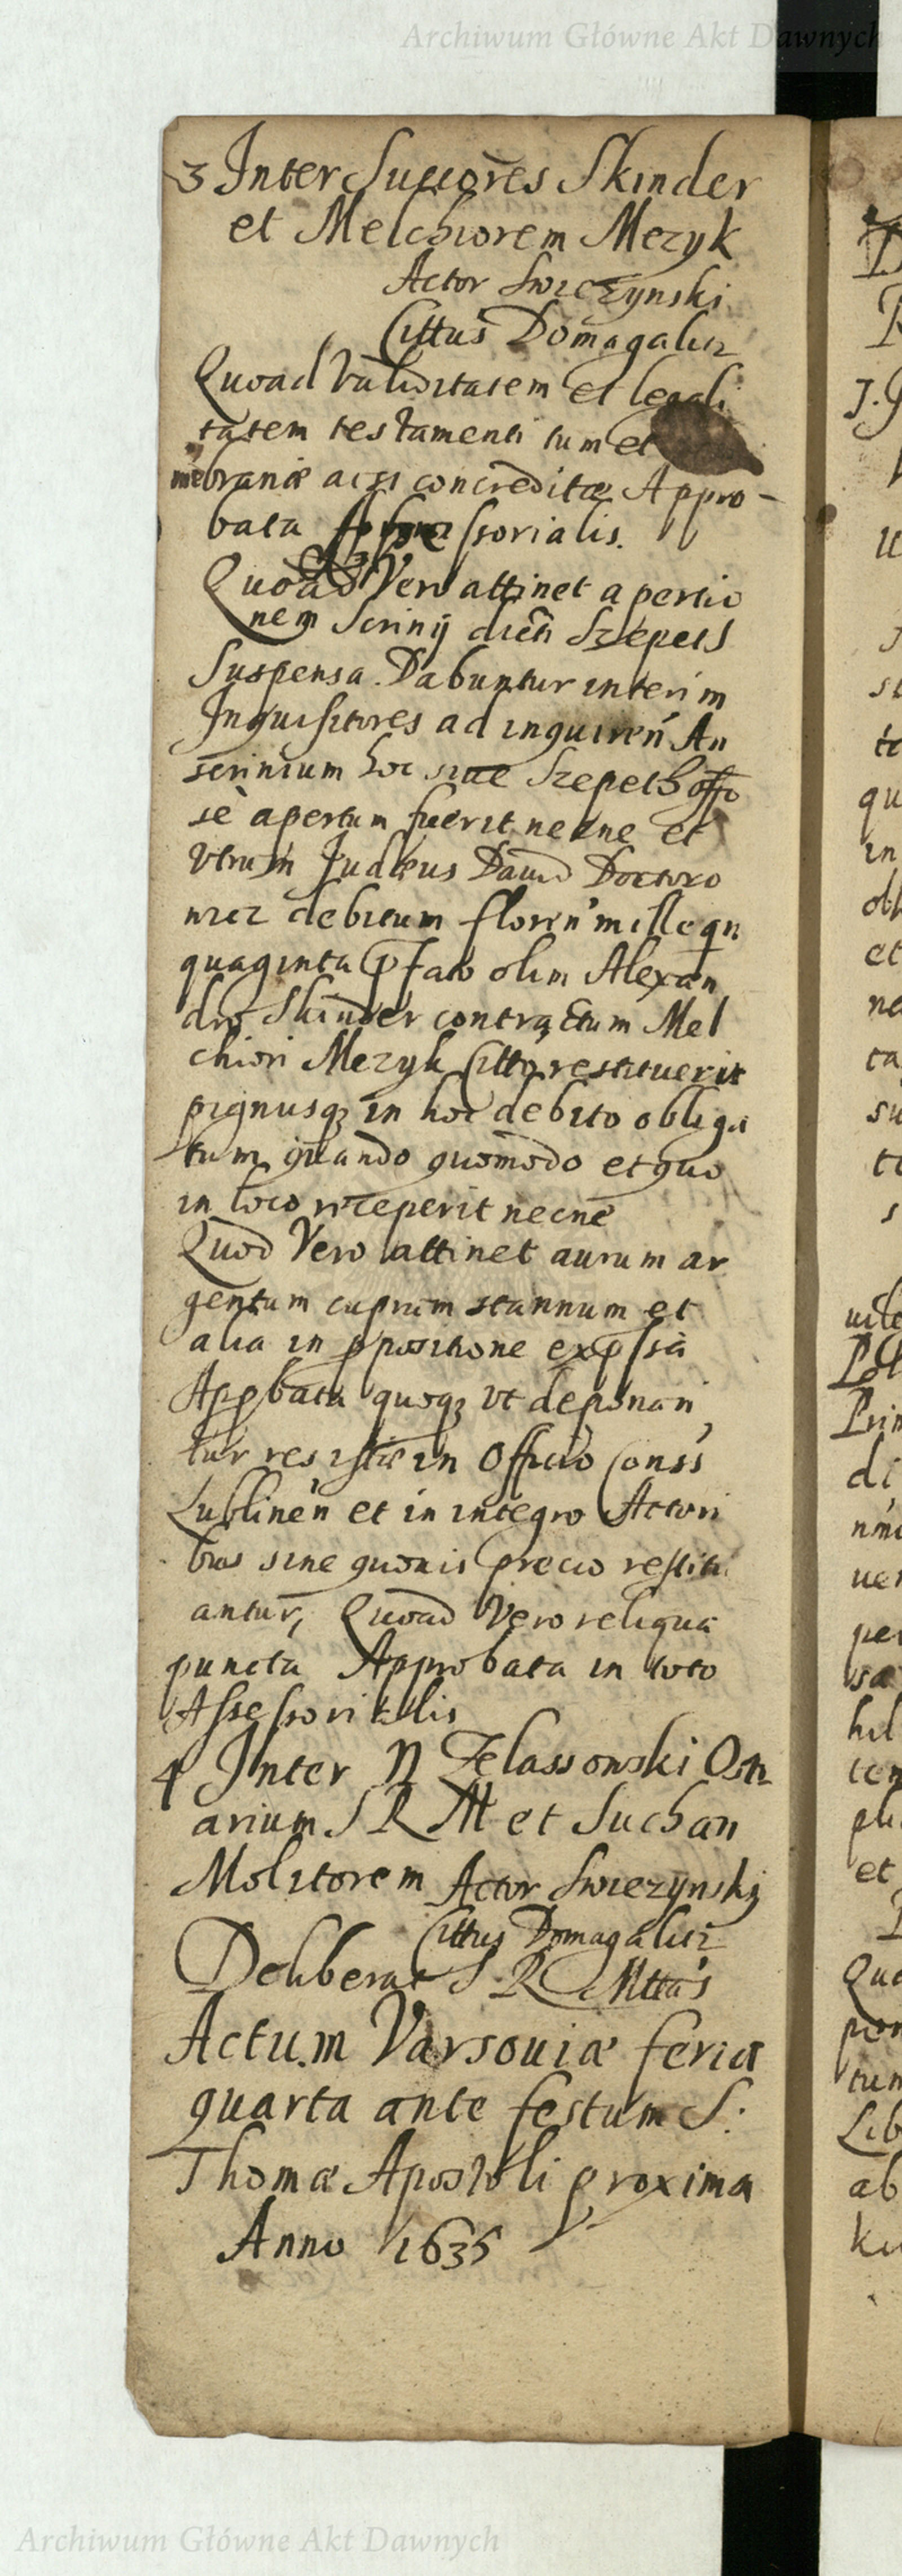 Archiwum Główne Akt Dawnych
3 Inter Successores Skinder
et Melchiorem Mezyk
Actor Swiezynski
Cittus Domagalicz
Quoad validitatem et legali
tatem testamenti tum et
mēbranæ concreditæ Appro-
bata ssorialis.
Quoad Vero attinet apertio
nem Scrinij dicti Szepeis
Suspensa. Dabuntur interim
Inquisitores ad inquiren An
scrinium hoc siue Szepeth
se apertum fuerit necne et
Vtrum Judæus Dauid Doctoro
wicz debitum floren mille qn
quaginta pfato olim Alexan
dro Skinder contractum Mel
chiori Mezyk Citto restituerit
pignusq in hoc debito obliga
tum quando quomodo et quo
in loco receperit necne
Quod Vero attinet aurum ar
gentum cuprum stannum et
alia in ppositione expssa
Appbata quoq vt deponan
tur res istæ in Officio Conss
Lublinen et in integro Actori
bus sine quouis precio restitu
antur, Quoad Vero reliqua
puncta Approbata in toto
Assessorialis
4 Inter N Zelassowski Ostı
arium S R M et Suchan
Molitorem Actor Swiezynski
Cittus Domagalicz
Deliberat S. R Mttas
Actum Varsouiæ feria
quarta ante festum S:
Thomæ Apostoli proxima
Anno 1635
Archiwum Główne Akt Dawnych